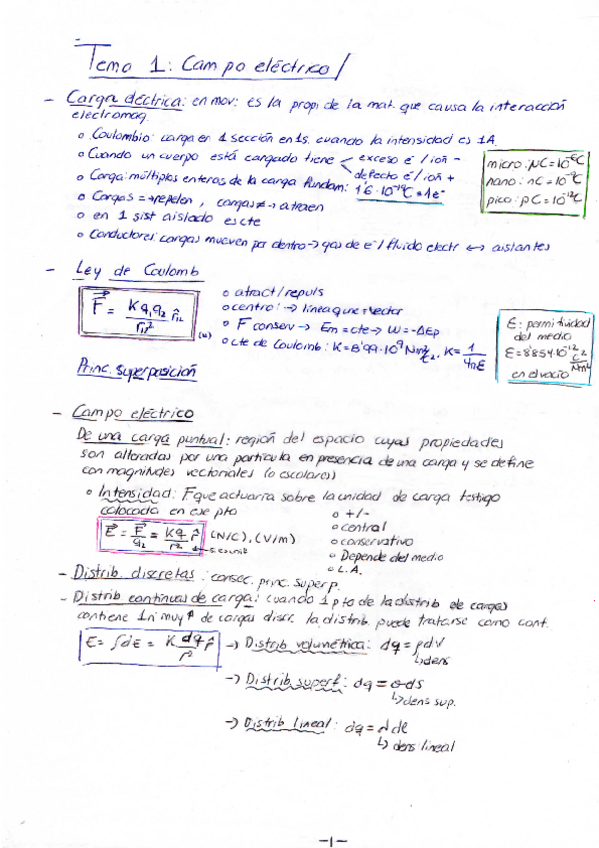 Tema 1: Campo eléctrico
- Carga eléctrica: en mov: es la propi de la mat. que causa la interacción
electromag.
o Coulombio: carga en 1 sección en 1s. cuando la intensidad es 1A.
o Cuando un cuerpo está cargado tiene < exceso e⁻/ ion -
defecto e⁻/ ion +
o Carga: múltiplos enteros de la carga fundam: 1'6·10⁻¹⁹C = 1e⁻
o Cargas = → repelen, cargas ≠ → atraen
o en 1 sist aislado es cte
o Conductores: cargas mueven por dentro → gas de e⁻/ fluido electr ↔ aislantes
micro: μC = 10⁻⁶C
nano: nC = 10⁻⁹C
pico: pC = 10⁻¹²C
- Ley de Coulomb
F = K q₁q₂ / r₁₂² r̂₁₂
(N)
o atract/repuls
o central: → línea que conectar
o F conserv → Em = cte → W = -ΔEp
o cte de Coulomb: K = 8'99·10⁹ Nm²/C², K = 1/4πε
ε: permitividad
del medio
ε = 8'854·10⁻¹² C²/Nm²
en el vacío
Princ. superposición
- Campo eléctrico
De una carga puntual: región del espacio cuyas propiedades
son alteradas por una partícula en presencia de una carga y se define
con magnitudes vectoriales (o escalares)
o Intensidad: F que actuaría sobre la unidad de carga testigo
colocada en ese pto
E = F/q₂ = Kq/r² r̂ (N/C), (V/m)
o +/-
o central
o conservativo
o Depende del medio
o L.A.
- Distrib. discretas: consec. princ. superp.
- Distrib continuas de carga: cuando 1 pto de la distrib de cargas
contiene 1 nº muy ↑ de cargas discr. la distrib. puede tratarse como cont.
E = ∫dE = K dq/r² r̂
→ Distrib volumétrica: dq = ρdV
↳ dens
→ Distrib superf: dq = σds
↳ dens sup.
→ Distrib lineal: dq = λdl
↳ dens lineal
-1-